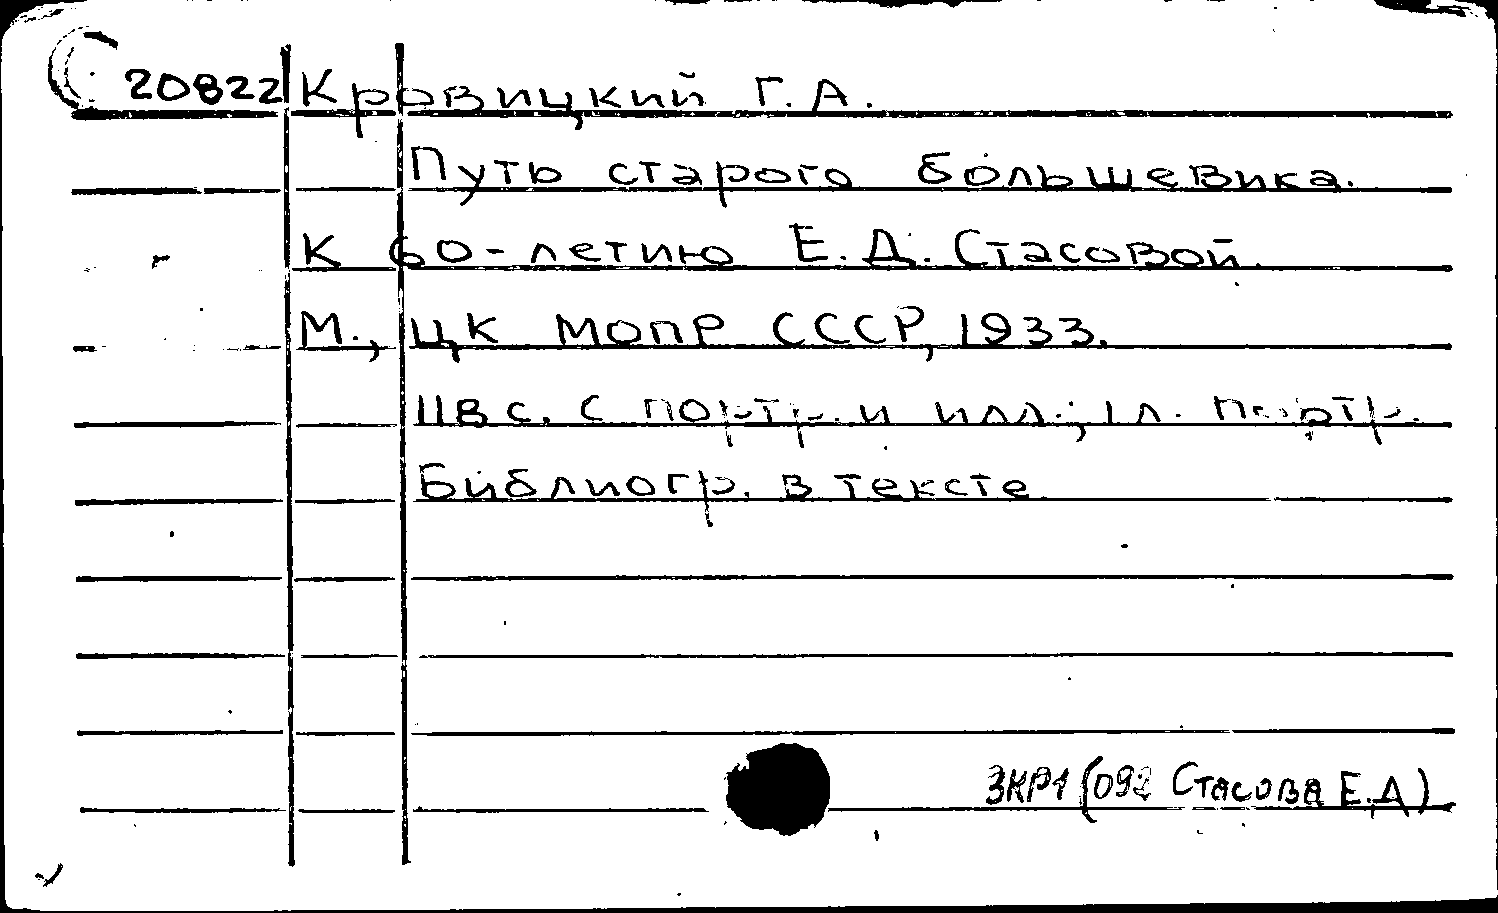 20822 Кровицкий Г. А.
Путь старого большевика.
К 60-летию Е. Д. Стасовой.
М., ЦК МОПР СССР, 1933.
118 с. с портр. и илл.; 1 л. портр.
Библиогр. в тексте
ЗКР1 (092 Стасова Е.Д)